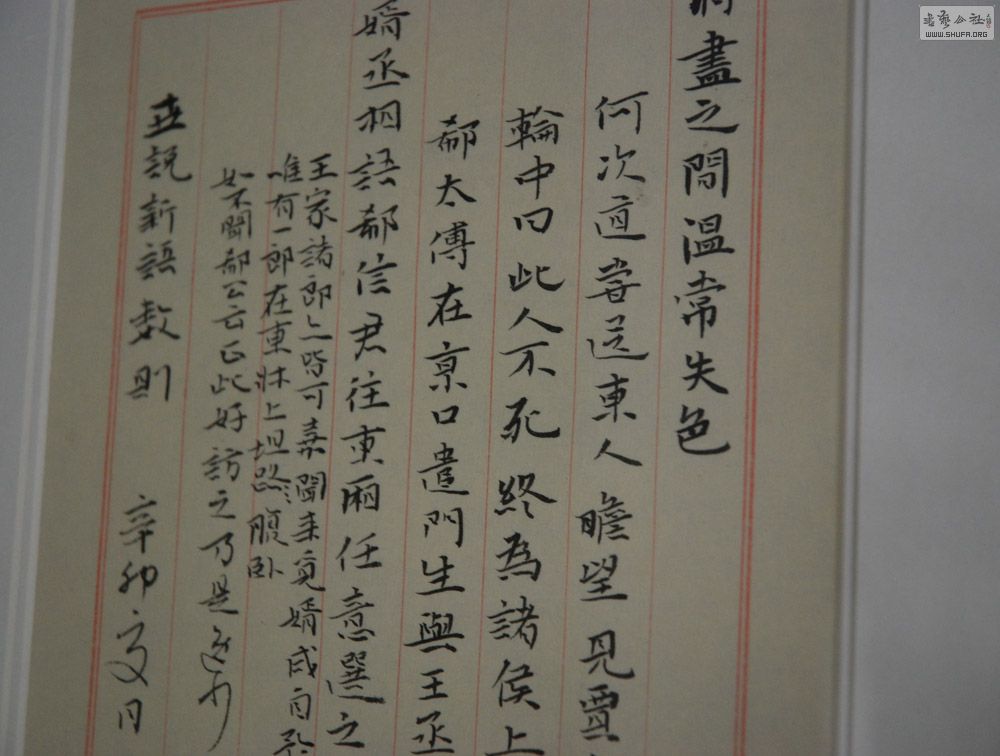 盡之間溫常失色
何次道嘗送東人瞻望見賈
輪中曰此人不死終為諸侯上
郗太傅在京口遣門生與王丞
婿丞相語郗信君往東廂任意選之
王家諸郎亦皆可嘉聞来覓婿咸自矜
唯有一郎在東牀上坦路腹卧
如不聞郗公云正此好訪之乃是逸少
世説新語数則 辛卯夏月
書藝公社
WWW.SHUFA.ORG